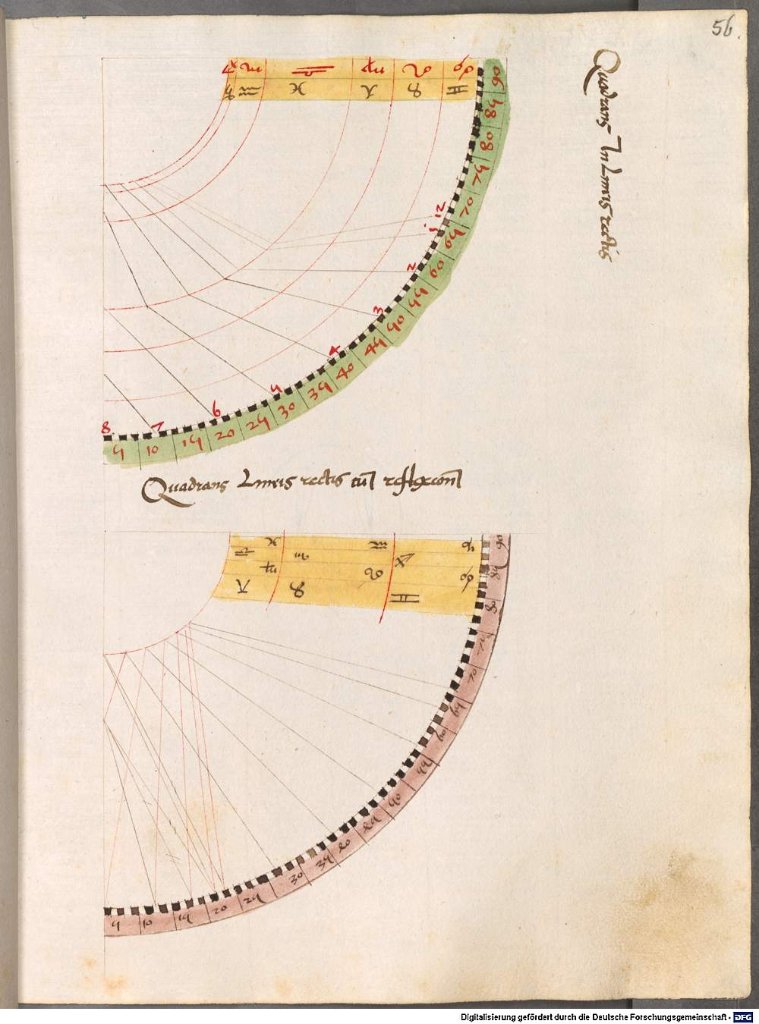 56.
Quadrans In Lineis rectis
♐ ♏ ♎ ♍ ♌ ♋
♑ ♒ ♓ ♈ ♉ ♊
12 1 2 3 4 5 6 7 8
90 85 80 75 70 65 60 55 50 45 40 35 30 25 20 15 10 5
Quadrans Lineis rectis cū
90 85 80 75 70 65 60 55 50 45 40 35 30 25 20 15 10 5
Digitalisierung gefördert durch die Deutsche Forschungsgemeinschaft - DFG